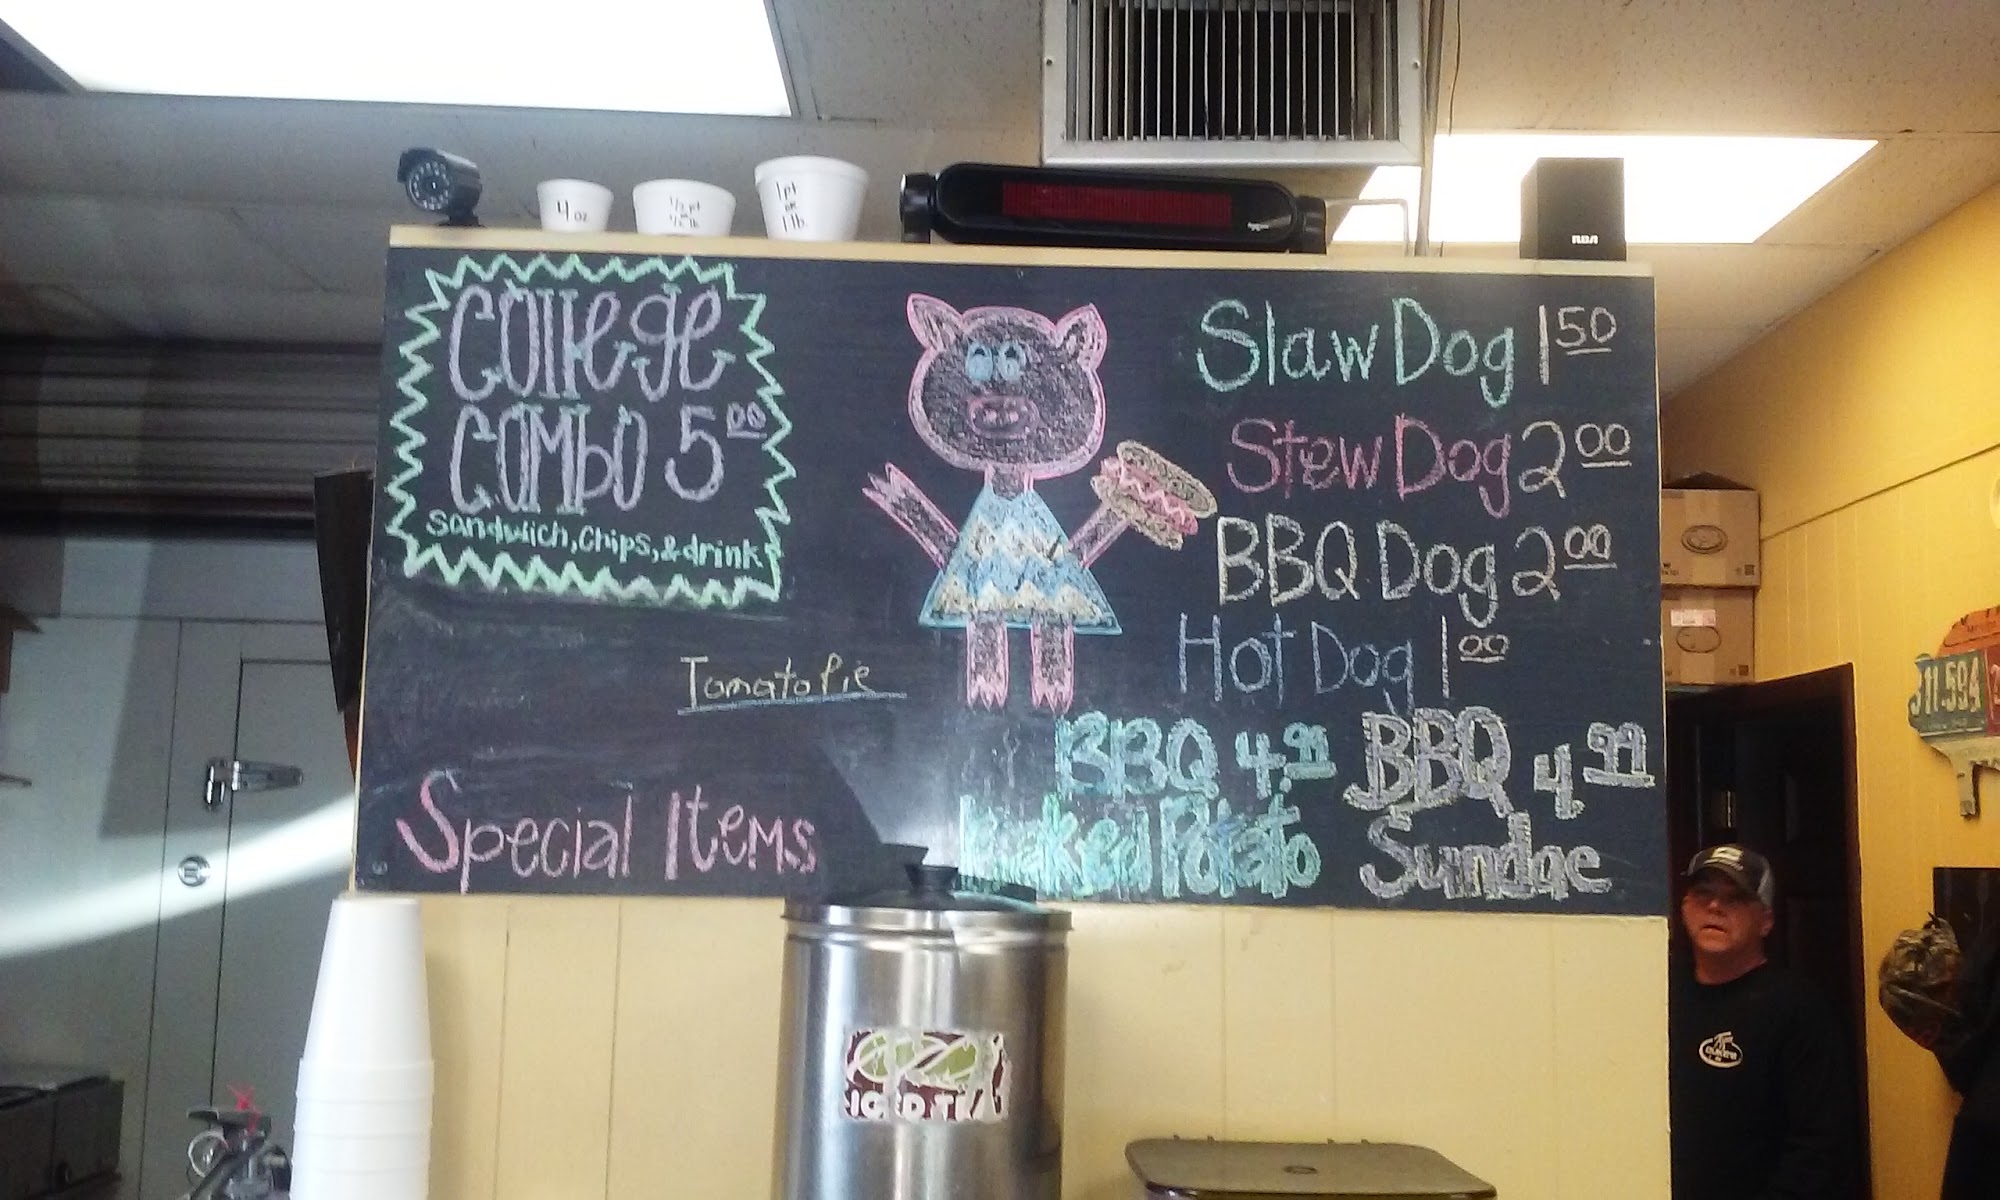 4 oz.
1/2 pt
or
1/2 lb
1 pt
or
1 lb.
RCA
College
Combo 5 00
Sandwich, Chips, & drink
Slaw Dog 1 50
Stew Dog 2 00
BBQ Dog 2 00
Hot Dog 1 00
Tomato Pie
BBQ 4.99
Baked Potato
BBQ 4 99
Sundae
Special Items
ICED TEA
311-594